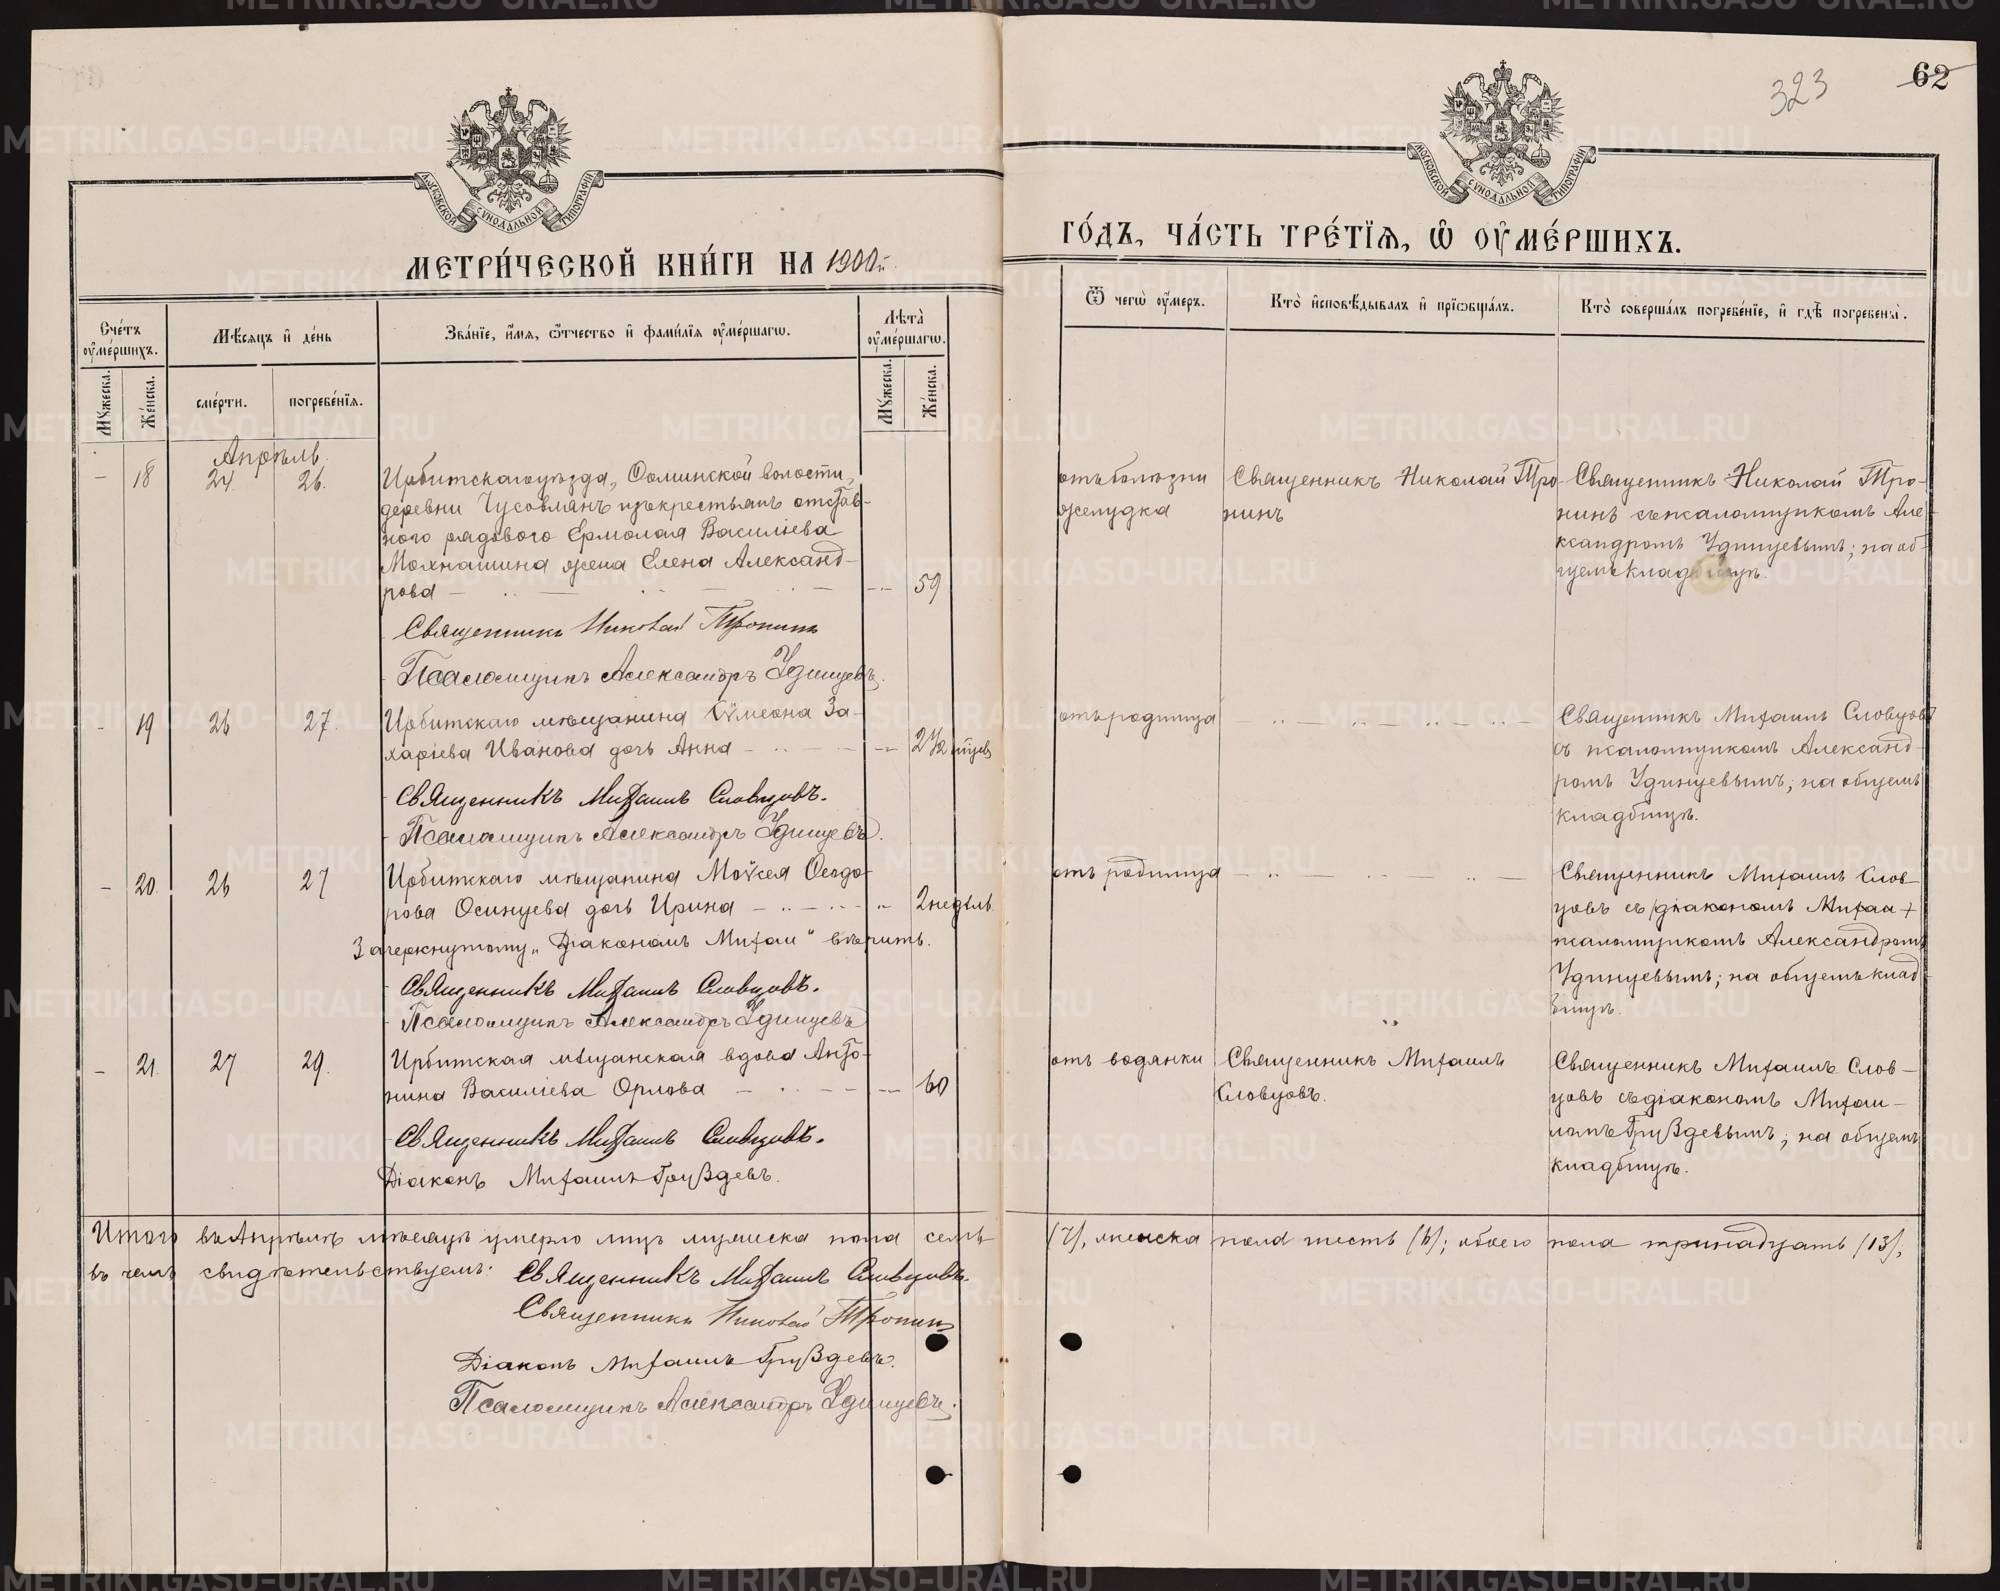 323
62
МОСКОВСКОЙ СѴНОДАЛЬНОЙ ТИПОГРАФІИ
МОСКОВСКОЙ СѴНОДАЛЬНОЙ ТИПОГРАФІИ
МЕТРИ́ЧЕСКОЙ КНИ́ГИ НА 1900й
ГО́ДЪ, ЧА́СТЬ ТРЕ́ТІЯ, Ѿ ОУМЕ́РШИХЪ.
Сче́тъ оумершихъ.
Мѣсяцъ и день
Зва́ніе, и́мя, ѻ́тчество и фами́лія оуме́ршагѡ.
Лѣта оуме́ршагѡ.
Мужеска.
Же́нска.
сме́рти.
погребе́нія.
Мужеска.
Же́нска.
Ѿ чегѡ оу́меръ.
Кто̀ исповѣ́дывалъ и прїѡбща́лъ.
Кто̀ соверша́лъ погребе́ніе, и гдѣ̀ погребены̀.
Апрѣль.
– 18 24. 26.
Ирбитскаго уѣзда, Ѳоминской волости,
деревни Чусовлянъ изъ крестьянъ отстав-
ного рядового Ермолая Василіева
Молнашина жена Елена Александ-
рова – 59
Священникъ Николай Тронинъ
Псаломщикъ Александръ Удинцевъ.
отъ болѣзни
желудка
Священникъ Николай Тро-
нинъ
Священникъ Николай Тро-
нинъ съ псаломщикомъ Але-
ксандромъ Удинцевымъ; на об-
щемъ кладбищѣ.
- 19 26 27.
Ирбитскаго мѣщанина Сѵмеона За-
харіева Иванова дочь Анна – 2 1/2 мѣсяц
Священникъ Михаилъ Словцовъ.
Псаломщикъ Александръ Удинцевъ.
отъ родимца
Священникъ Михаилъ Словцовъ
съ псаломщикомъ Александ-
ромъ Удинцевымъ; на общемъ
кладбищѣ.
– 20. 26 27
Ирбитскаго мѣщанина Моѵсея Ѳеодо-
рова Осинцева дочь Ирина – 2 недѣль
Зачеркнутому „Діакономъ Михаи" вѣрить.
Священникъ Михаилъ Словцовъ.
Псаломщикъ Александръ Удинцевъ
отъ родимца
Священникъ Михаилъ Слов-
цовъ съ діакономъ Михаи
псаломщикомъ Александромъ
Удинцевымъ; на общемъ клад-
бищѣ.
– 21. 27 29.
Ирбитская мѣщанская вдова Анто-
нина Василіева Орлова – 60
Священникъ Михаилъ Словцовъ.
Діаконъ Михаилъ Груздевъ.
отъ водянки
Священникъ Михаилъ
Словцовъ.
Священникъ Михаилъ Слов-
цовъ съ діакономъ Михаи-
ломъ Груздевымъ; на общемъ
кладбищѣ.
Итого въ Апрѣлѣ мѣсяцѣ умерло лицъ мужеска пола семь (7), женска пола шесть (6); обоего пола тринадцать (13),
въ чемъ свидѣтельствуемъ: Священникъ Михаилъ Словцовъ.
Священникъ Николай Тронинъ
Діаконъ Михаилъ Груздевъ.
Псаломщикъ Александръ Удинцевъ.
METRIKI.GASO-URAL.RU